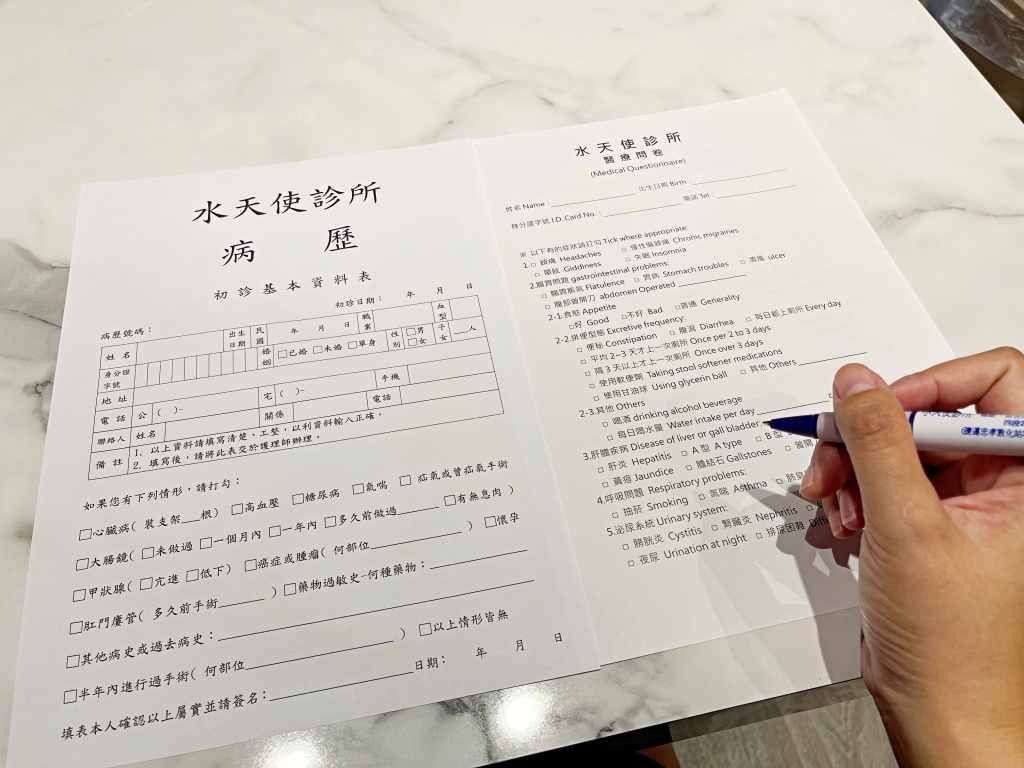 水天使診所
病 歷
初診基本資料表
初診日期： 年 月 日
病歷號碼：
姓名 出生日期 民國 年 月 日 職業 血型
身分證字號 婚姻 □已婚 □未婚 □單身 性別 □男 □女 子女 ___人
地址
電話 公 ( )- 宅 ( )- 手機
聯絡人 姓名 關係 電話
備註 1. 以上資料請填寫清楚、工整，以利資料輸入正確。
2. 填寫後，請將此表交於護理師辦理。
如果您有下列情形，請打勾：
□心臟病( 裝支架___根) □高血壓 □糖尿病 □氣喘 □ 疝氣或曾疝氣手術
□大腸鏡( □未做過 □一個月內 □一年內 □多久前做過______ □有無息肉 )
□甲狀腺( □亢進 □低下) □癌症或腫瘤( 何部位____________ ) □懷孕
□肛門廔管( 多久前手術______ ) □藥物過敏史-何種藥物：____________
□其他病史或過去病史：____________
□半年內進行過手術( 何部位____________ ) □以上情形皆無
填表本人確認以上屬實並請簽名：____________ 日期： 年 月 日
水天使診所
醫療問卷
(Medical Questionnaire)
姓名 Name：____________ 出生日期 Birth：____________
身分證字號 I.D. Card No.：____________ 電話 Tel：____________
※ 以下有的症狀請打勾 Tick where appropriate:
1.□ 頭痛 Headaches □ 慢性偏頭痛 Chronic migraines
□ 暈眩 Giddiness □ 失眠 Insomnia
2.腸胃問題 gastrointestinal problems:
□ 腸胃脹氣 Flatulence □ 胃病 Stomach troubles □ 潰瘍 ulcer
□ 腹部曾開刀 abdomen Operated ____________
2-1.食慾 Appetite
□好 Good □不好 Bad □普通 Generality
2-2.排便型態 Excretive frequency:
□ 便秘 Constipation □ 腹瀉 Diarrhea □ 每日都上廁所 Every day
□ 平均 2~3 天才上一次廁所 Once per 2 to 3 days
□ 隔 3 天以上才上一次廁所 Once over 3 days
□ 使用軟便劑 Taking stool softener medications
□ 使用甘油球 Using glycerin ball □ 其他 Others ____________
2-3.其他 Others
□ 喝酒 drinking alcohol beverage
□ 每日喝水量 Water intake per day ____________ c
3.肝膽疾病 Disease of liver or gall bladder:
□ 肝炎 Hepatitis □ A 型 A type □ B 型
□ 黃疸 Jaundice □ 膽結石 Gallstones □ 曾開
4.呼吸問題 Respiratory problems:
□ 抽菸 Smoking □ 氣喘 Asthma □ 肺
5.泌尿系統 Urinary system:
□ 膀胱炎 Cystitis □ 腎臟炎 Nephritis
□ 夜尿 Urination at night □ 排尿困難